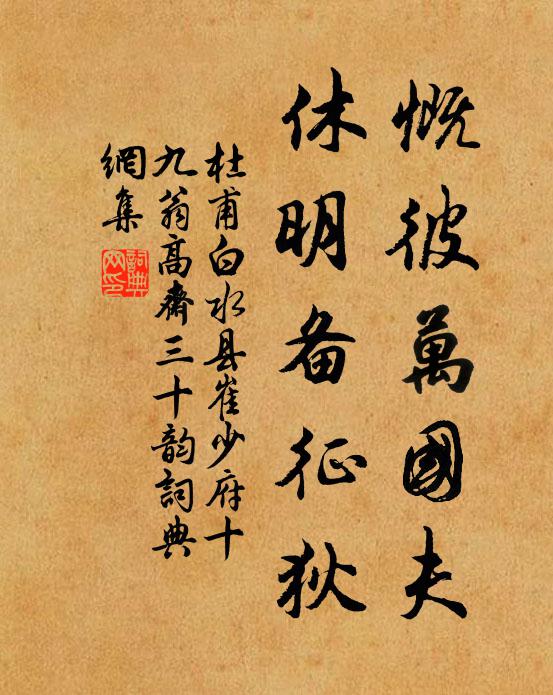 慨彼萬國夫
休明备征狄
杜甫白水县崔少府十
九翁高齋三十韵詞典
網集
詞典
网印